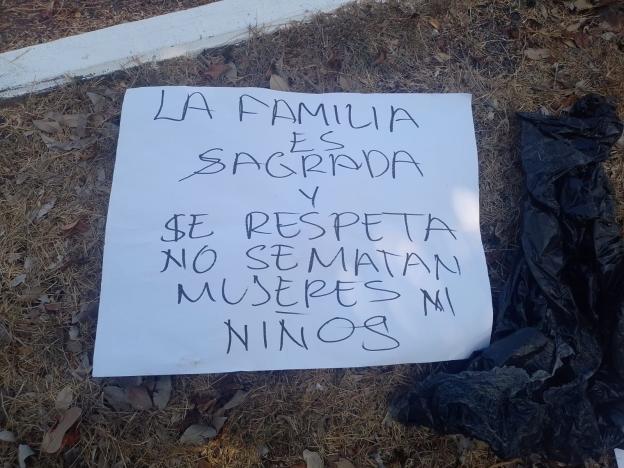 LA FAMILIA
ES
SAGRADA
Y
SE RESPETA
NO SE MATAN
MUJERES NI
NIÑOS